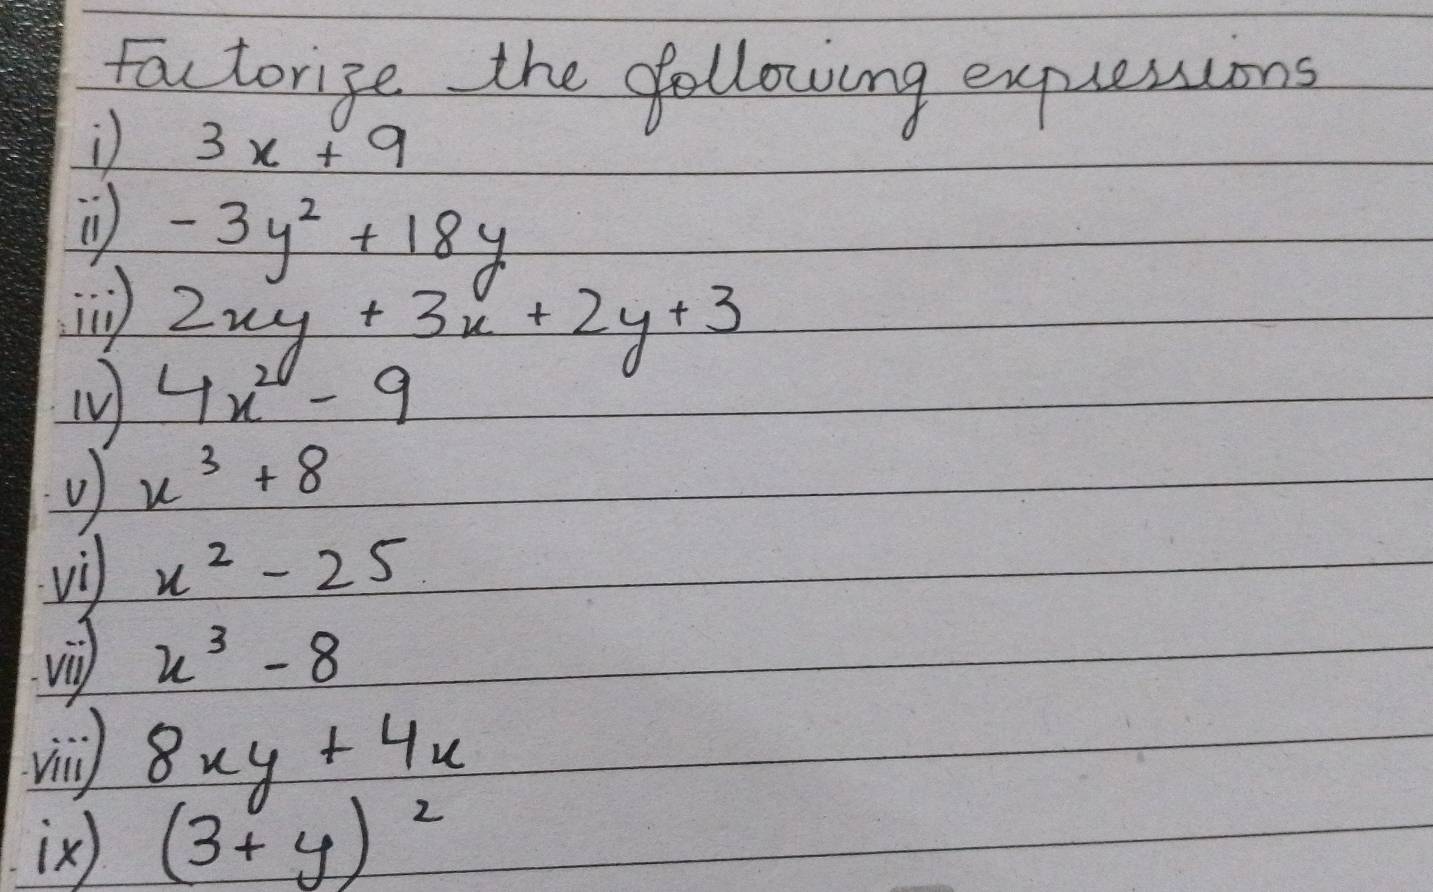 Factorize the following expressions
i) 3x + 9
ii) -3y² + 18y
iii) 2xy + 3x + 2y + 3
iv) 4x² - 9
v) x³ + 8
vi) x² - 25
vii) x³ - 8
viii) 8xy + 4x
ix) (3 + y)²